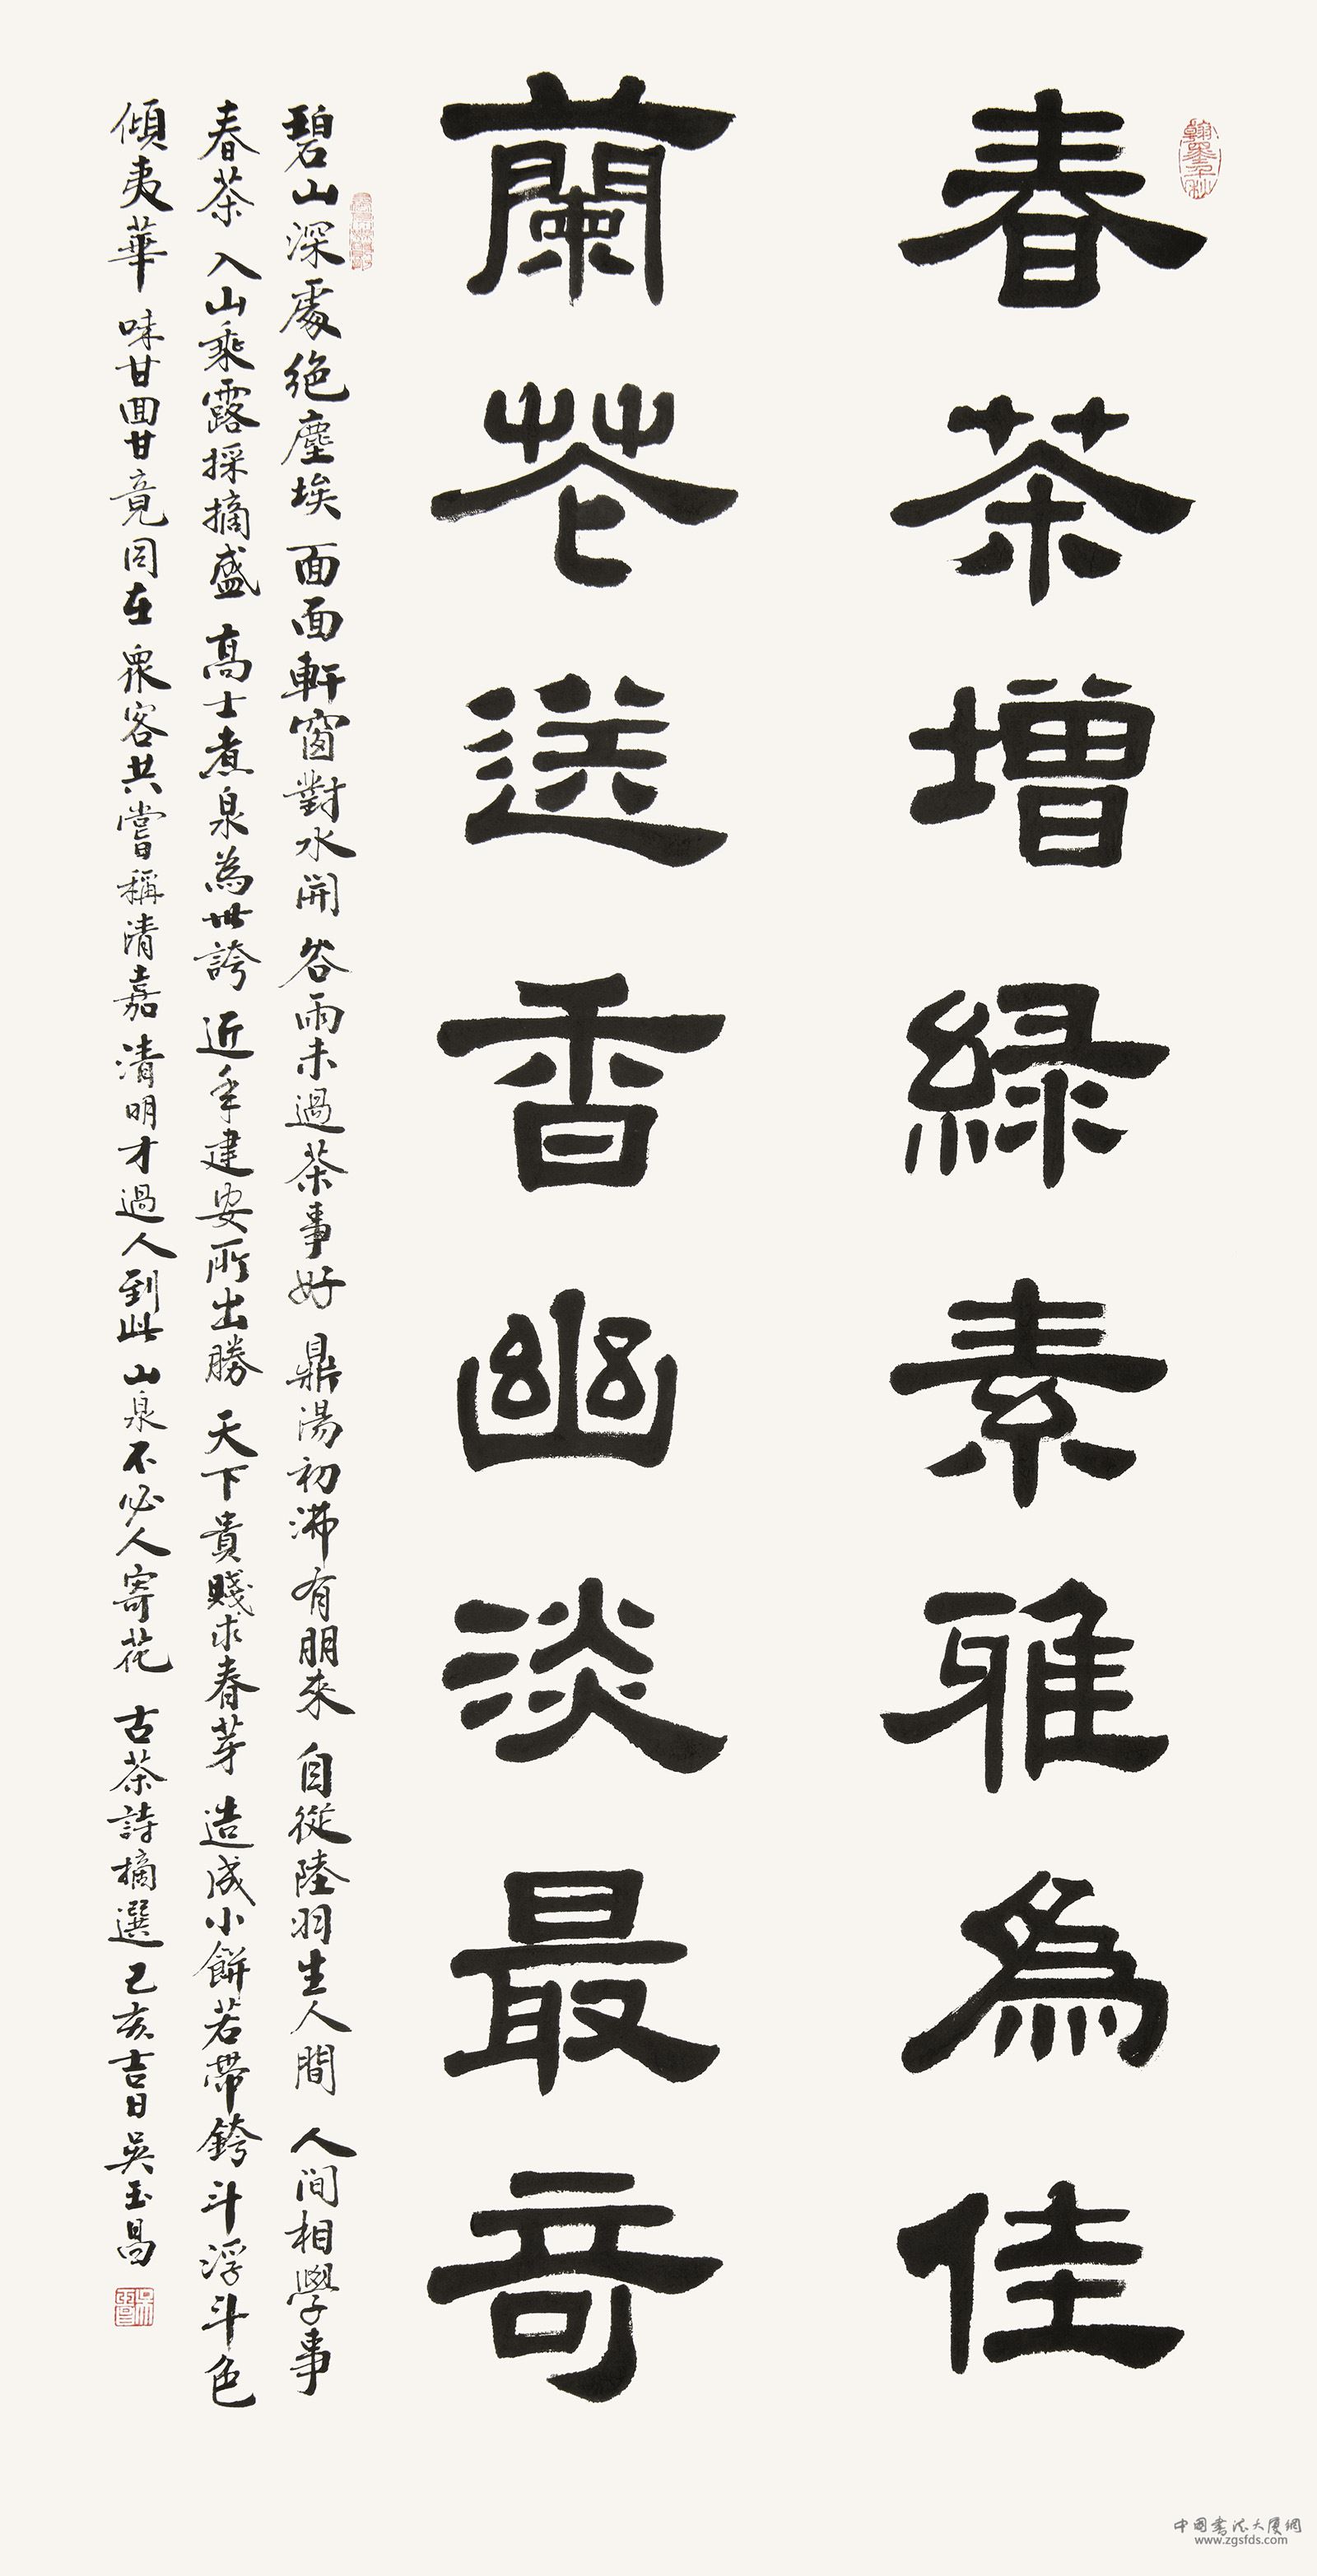 春茶增緑素雅為佳
蘭花送香幽淡最奇
碧山深處絕塵埃面面軒窗對水開谷雨未過茶事好鼎湯初沸有朋來自從陸羽生人間人間相學事
春茶入山乘露採摘盛高士煮泉為世誇近年建安所出勝天下貴賤求春芽造成小餅若帶銙斗浮斗色
傾夷華味甘回甘竟因在眾客共嘗稱清嘉清明才過人到此山泉不必人寄花古茶詩摘選己亥吉日吳玉昌
翰墨千秋
中國書法大廈網
www.zgsfds.com